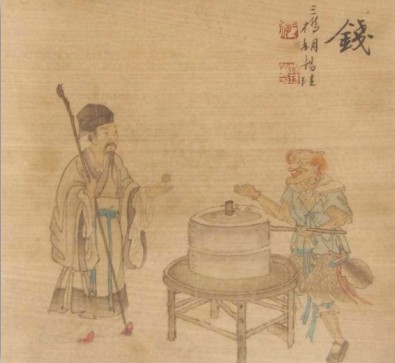 錢
三橋胡錫珪